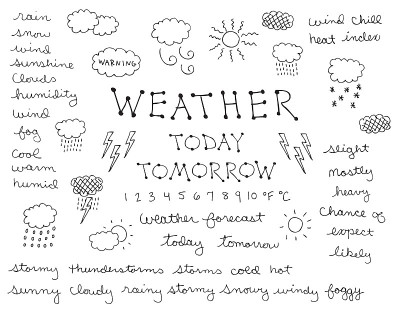 rain
snow
wind
sunshine
clouds
humidity
wind
fog
cool
warm
humid
WARNING
wind chill
heat index
WEATHER
TODAY
TOMORROW
1 2 3 4 5 6 7 8 9 10 °F °C
weather forecast
today tomorrow
slight
mostly
heavy
chance of
expect
likely
stormy thunderstorms storms cold hot
sunny cloudy rainy stormy snowy windy foggy